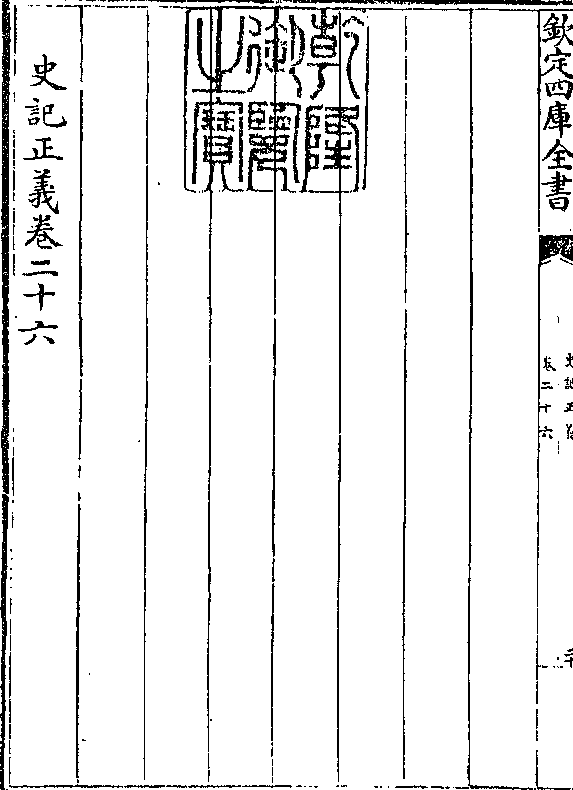 欽定四庫全書
史記正義
卷二十六
乾隆御覽之寶
史記正義卷二十六